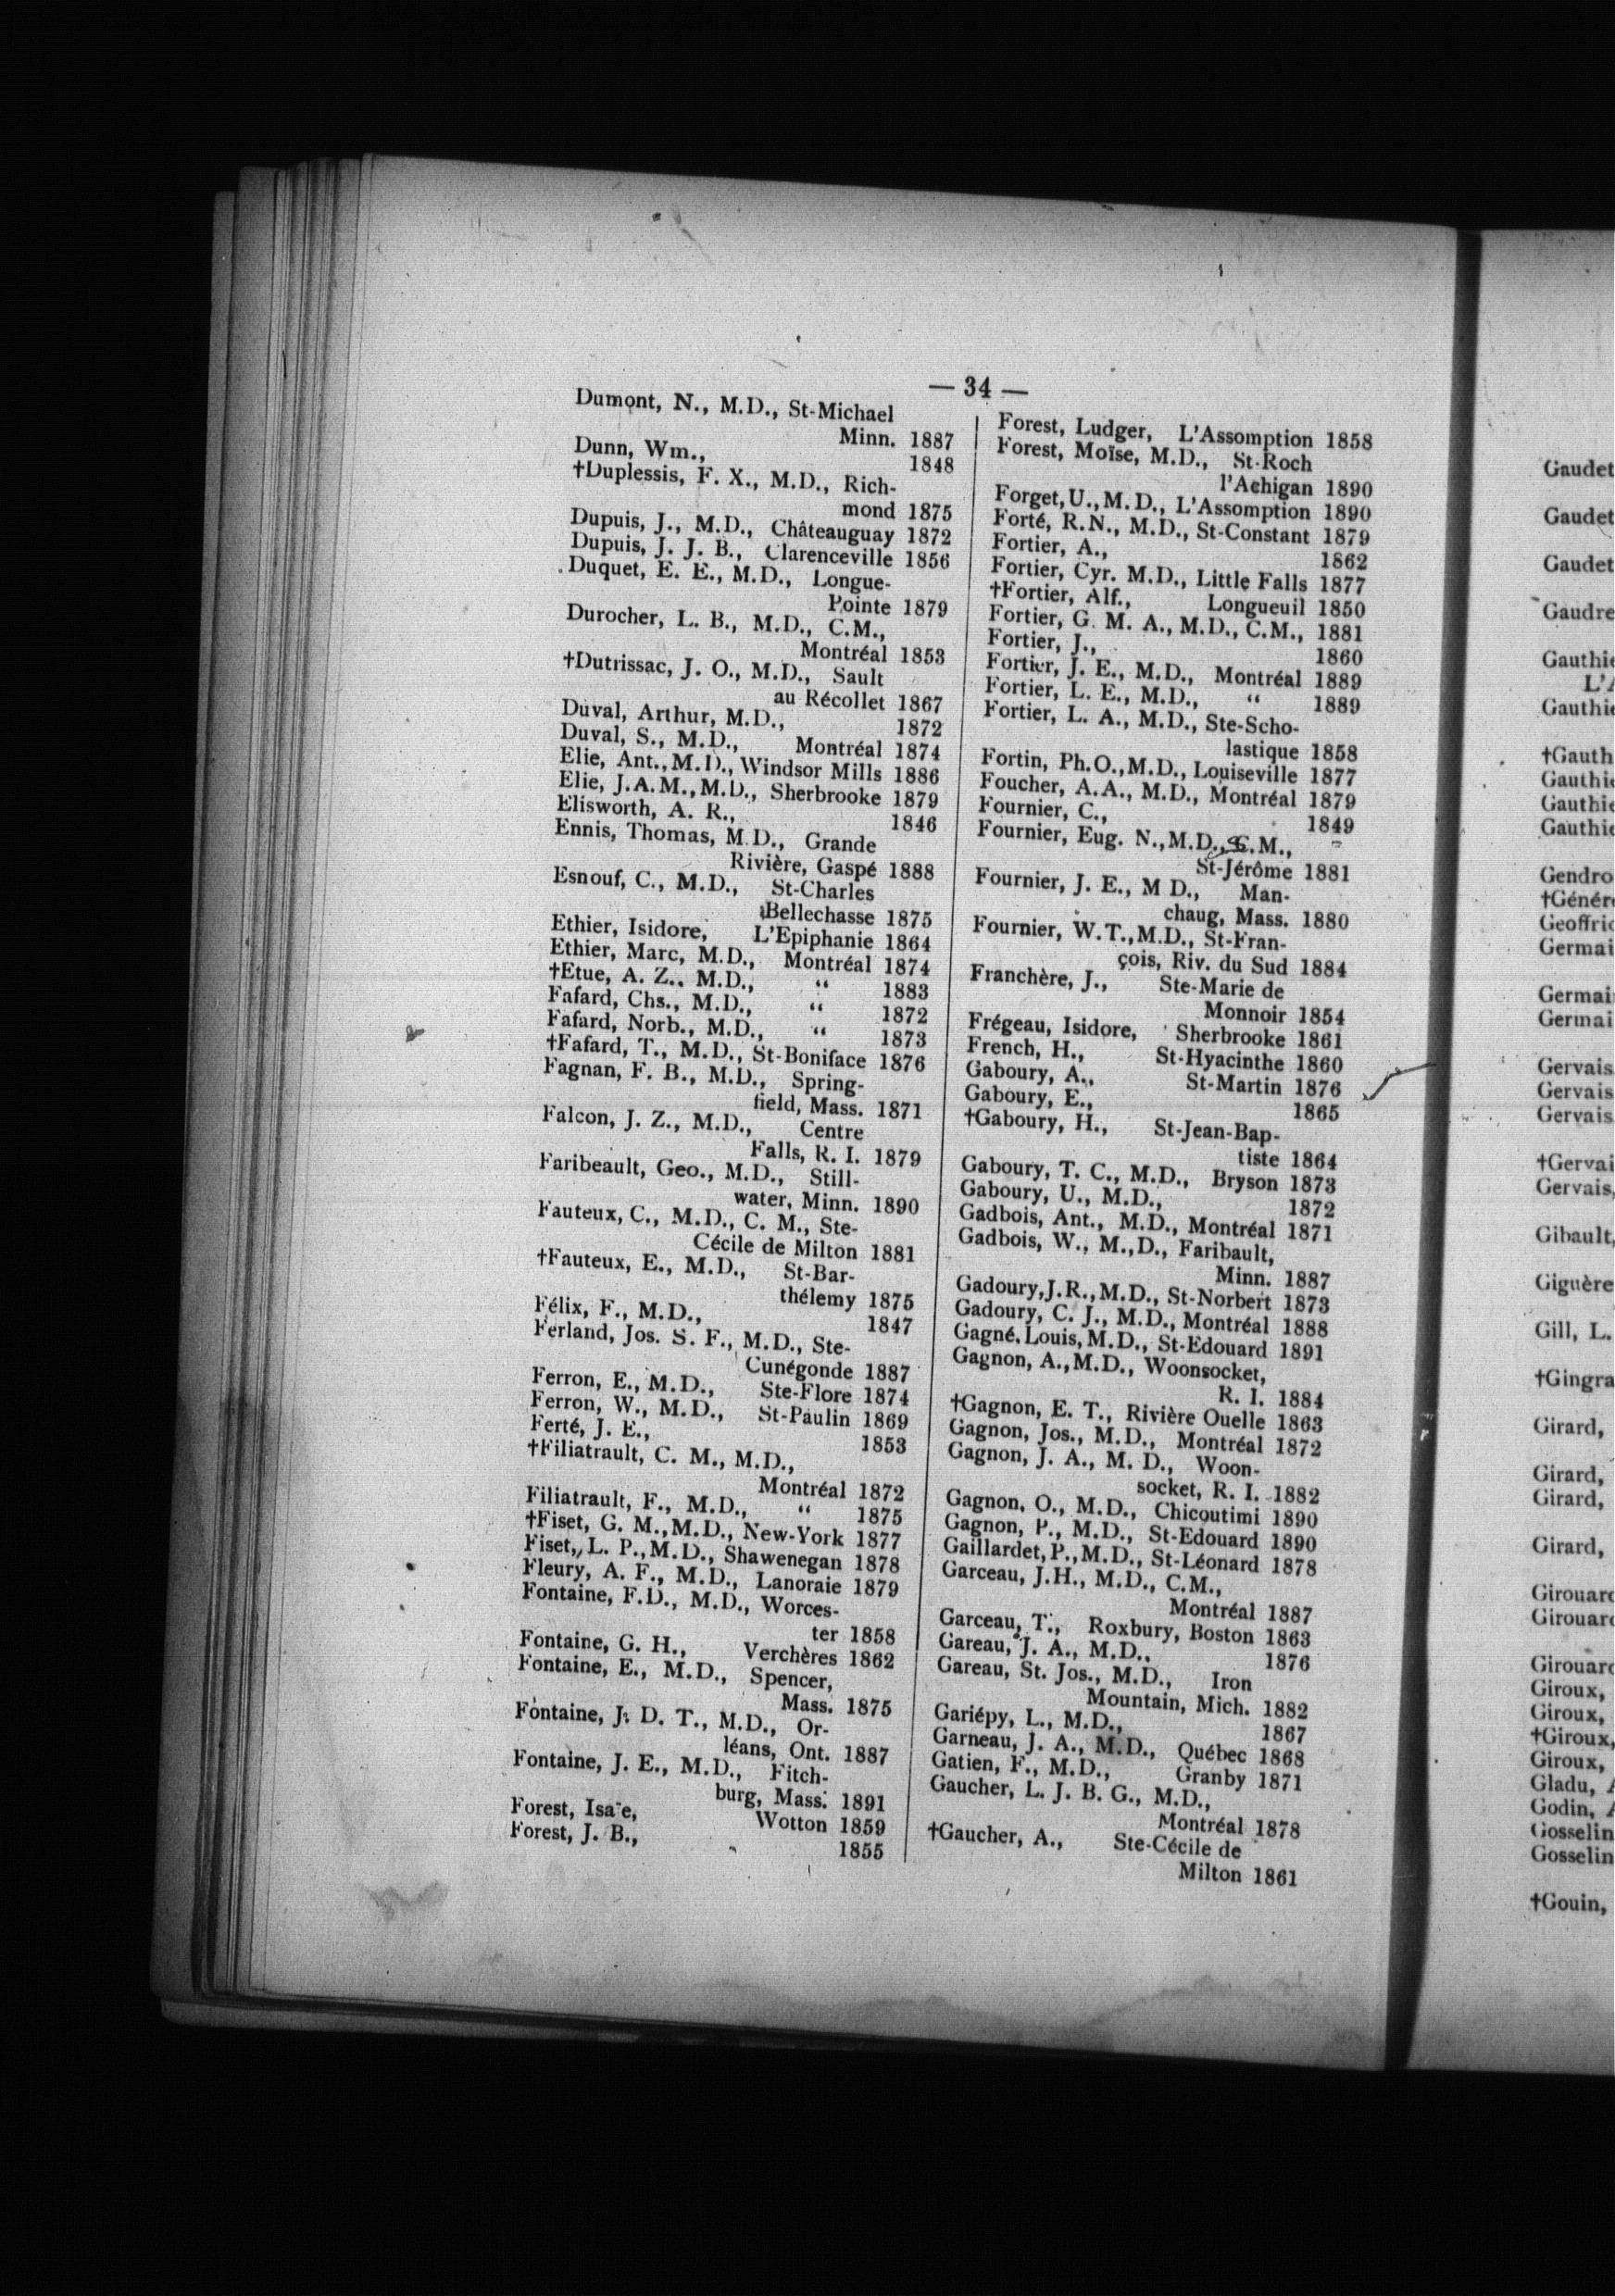 — 34 —
Dumont, N., M.D., St-Michael
Minn. 1887
Dunn, Wm., 1848
†Duplessis, F. X., M.D., Rich-
mond 1875
Dupuis, J., M.D., Châteauguay 1872
Dupuis, J. J. B., Clarenceville 1856
Duquet, E. E., M.D., Longue-
Pointe 1879
Durocher, L. B., M.D., C.M.,
Montréal 1853
†Dutrissac, J. O., M.D., Sault
au Récollet 1867
Duval, Arthur, M.D., 1872
Duval, S., M.D., Montréal 1874
Elie, Ant., M.D., Windsor Mills 1886
Elie, J.A.M., M.D., Sherbrooke 1879
Elisworth, A. R., 1846
Ennis, Thomas, M.D., Grande
Rivière, Gaspé 1888
Esnouf, C., M.D., St-Charles
Bellechasse 1875
Ethier, Isidore, L'Epiphanie 1864
Ethier, Marc, M.D., Montréal 1874
†Etue, A. Z., M.D., “ 1883
Fafard, Chs., M.D., “ 1872
Fafard, Norb., M.D., “ 1873
†Fafard, T., M.D., St-Boniface 1876
Fagnan, F. B., M.D., Spring-
field, Mass. 1871
Falcon, J. Z., M.D., Centre
Falls, R. I. 1879
Faribeault, Geo., M.D., Still-
water, Minn. 1890
Fauteux, C., M.D., C. M., Ste-
Cécile de Milton 1881
†Fauteux, E., M.D., St-Bar-
thélemy 1875
Félix, F., M.D., 1847
Ferland, Jos. S. F., M.D., Ste-
Cunégonde 1887
Ferron, E., M.D., Ste-Flore 1874
Ferron, W., M.D., St-Paulin 1869
Ferté, J. E., 1853
†Filiatrault, C. M., M.D.,
Montréal 1872
Filiatrault, F., M.D., “ 1875
†Fiset, G. M., M.D., New-York 1877
Fiset, L. P., M.D., Shawenegan 1878
Fleury, A. F., M.D., Lanoraie 1879
Fontaine, F.D., M.D., Worces-
ter 1858
Fontaine, G. H., Verchères 1862
Fontaine, E., M.D., Spencer,
Mass. 1875
Fontaine, J. D. T., M.D., Or-
léans, Ont. 1887
Fontaine, J. E., M.D., Fitch-
burg, Mass. 1891
Forest, Isaïe, Wotton 1859
Forest, J. B., 1855
Forest, Ludger, L'Assomption 1858
Forest, Moïse, M.D., St-Roch
l'Achigan 1890
Forget, U., M.D., L'Assomption 1890
Forté, R.N., M.D., St-Constant 1879
Fortier, A., 1862
Fortier, Cyr. M.D., Little Falls 1877
†Fortier, Alf., Longueuil 1850
Fortier, G. M. A., M.D., C.M., 1881
Fortier, J., 1860
Fortier, J. E., M.D., Montréal 1889
Fortier, L. E., M.D., “ 1889
Fortier, L. A., M.D., Ste-Scho-
lastique 1858
Fortin, Ph.O., M.D., Louiseville 1877
Foucher, A.A., M.D., Montréal 1879
Fournier, C., 1849
Fournier, Eug. N., M.D., C.M.,
St-Jérôme 1881
Fournier, J. E., M D., Man-
chaug, Mass. 1880
Fournier, W.T., M.D., St-Fran-
çois, Riv. du Sud 1884
Franchère, J., Ste-Marie de
Monnoir 1854
Frégeau, Isidore, Sherbrooke 1861
French, H., St-Hyacinthe 1860
Gaboury, A., St-Martin 1876
Gaboury, E., 1865
†Gaboury, H., St-Jean-Bap-
tiste 1864
Gaboury, T. C., M.D., Bryson 1873
Gaboury, U., M.D., 1872
Gadbois, Ant., M.D., Montréal 1871
Gadbois, W., M.,D., Faribault,
Minn. 1887
Gadoury, J.R., M.D., St-Norbert 1873
Gadoury, C. J., M.D., Montréal 1888
Gagné, Louis, M.D., St-Edouard 1891
Gagnon, A., M.D., Woonsocket,
R. I. 1884
†Gagnon, E. T., Rivière Ouelle 1863
Gagnon, Jos., M.D., Montréal 1872
Gagnon, J. A., M. D., Woon-
socket, R. I. 1882
Gagnon, O., M.D., Chicoutimi 1890
Gagnon, P., M.D., St-Edouard 1890
Gaillardet, P., M.D., St-Léonard 1878
Garceau, J.H., M.D., C.M.,
Montréal 1887
Garceau, T., Roxbury, Boston 1863
Gareau, J. A., M.D., 1876
Gareau, St. Jos., M.D., Iron
Mountain, Mich. 1882
Gariépy, L., M.D., 1867
Garneau, J. A., M.D., Québec 1868
Gatien, F., M.D., Granby 1871
Gaucher, L. J. B. G., M.D.,
Montréal 1878
†Gaucher, A., Ste-Cécile de
Milton 1861
Gaudet
Gaudet
Gaudet
Gaudre
Gauthie
L'A
Gauthie
†Gauth
Gauthie
Gauthie
Gauthie
Gendro
†Génére
Geoffrio
Germai
Germai
Germai
Gervais
Gervais
Gervais
†Gervai
Gervais,
Gibault,
Giguère
Gill, L.
†Gingra
Girard,
Girard,
Girard,
Girard,
Girouard
Girouard
Girouard
Giroux,
Giroux,
†Giroux,
Giroux,
Gladu, A
Godin, A
Gosselin
Gosselin
†Gouin,